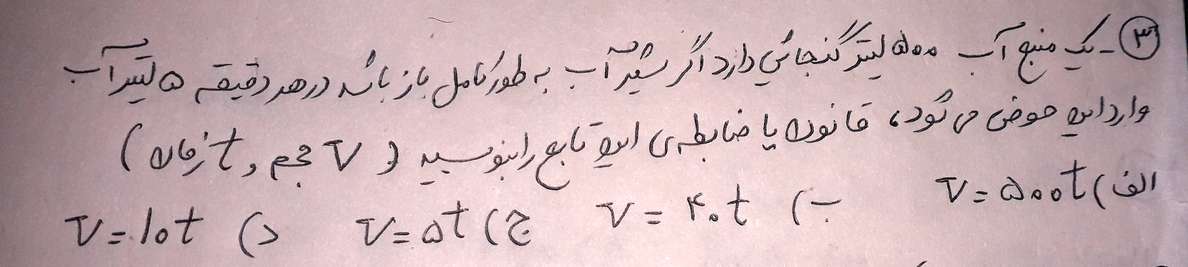 ۳- یک منبع آب ۵۰۰ لیتر گنجائی دارد اگر شیر آب به طور کامل باز باشد در هر دقیقه ۵ لیتر آب
وارد این حوض می شود، قانون یا ضابطه ی این تابع را بنویسید (V حجم و t زمان)
الف) V = ۵۰۰t ب) V = ۴۰t ج) V = ۵t د) V = ۱۰t